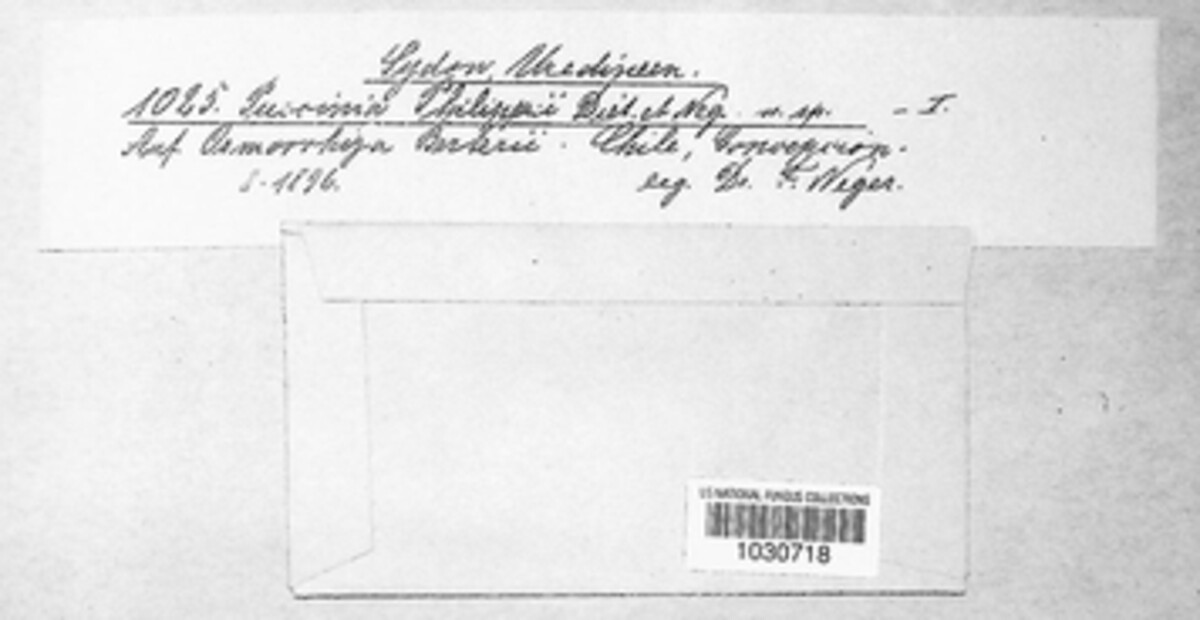 Sydow, Uredineen.
1025. Puccinia Philippii Diet. et Neg. n. sp. - I.
Auf Osmorrhiza Berterii. Chile, Concepcion.
8-1896. leg. Dr. F. Neger.
US NATIONAL FUNGUS COLLECTIONS
1030718